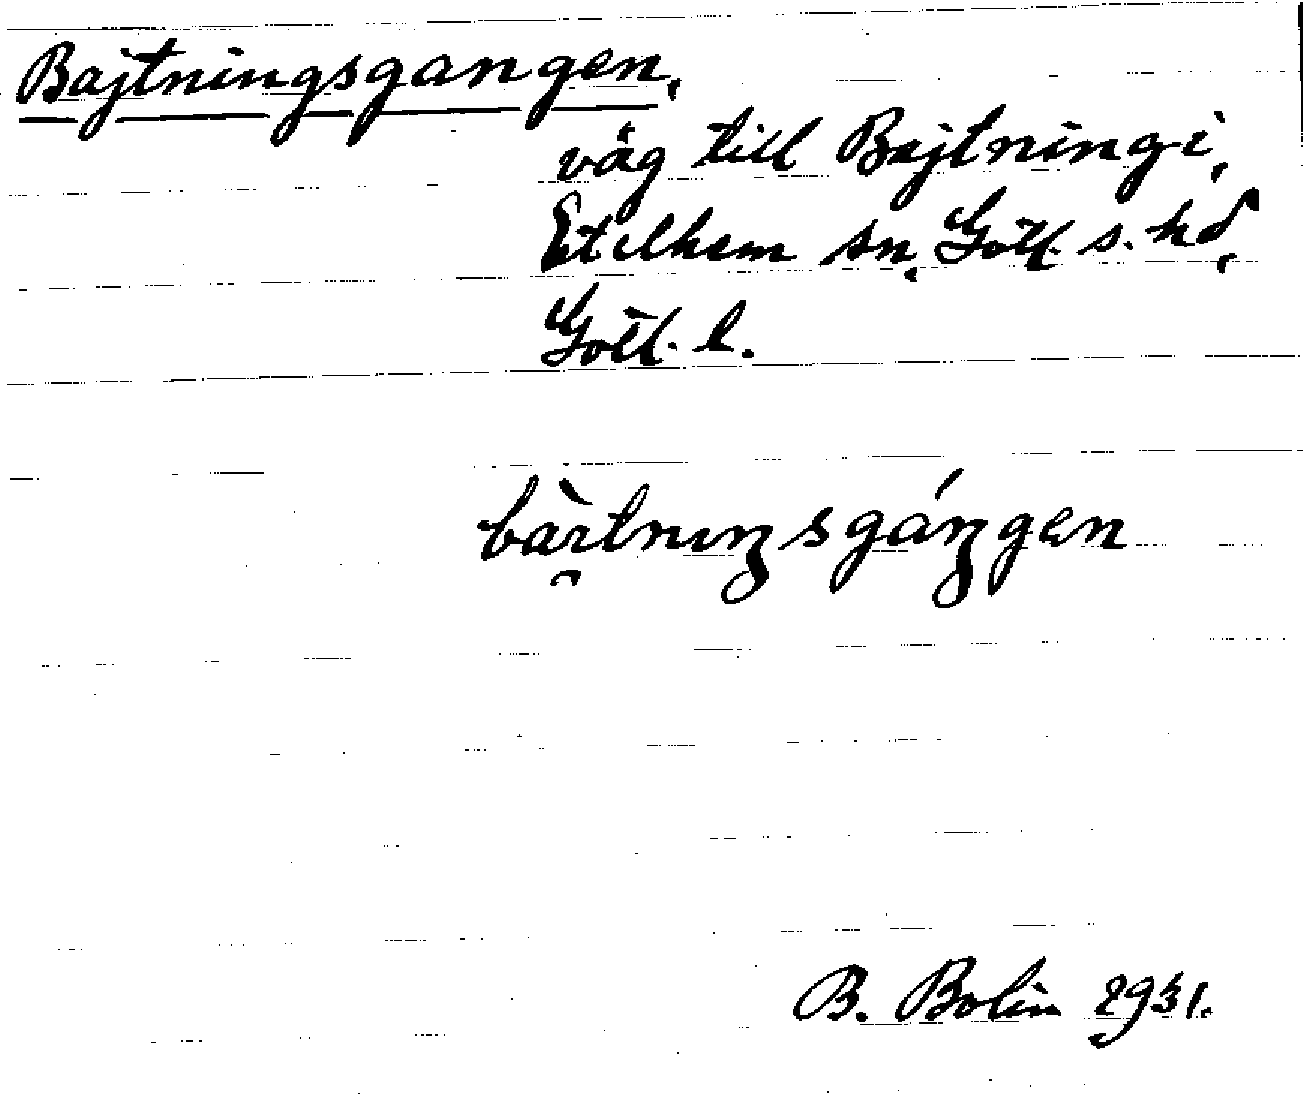 Bajtningsgangen,
väg till Bajtningi,
Etelhem sn, Gotl. s. hd,
Gotl. l.
bàı̯tnıŋsgáŋgen
B. Bolin 1931.